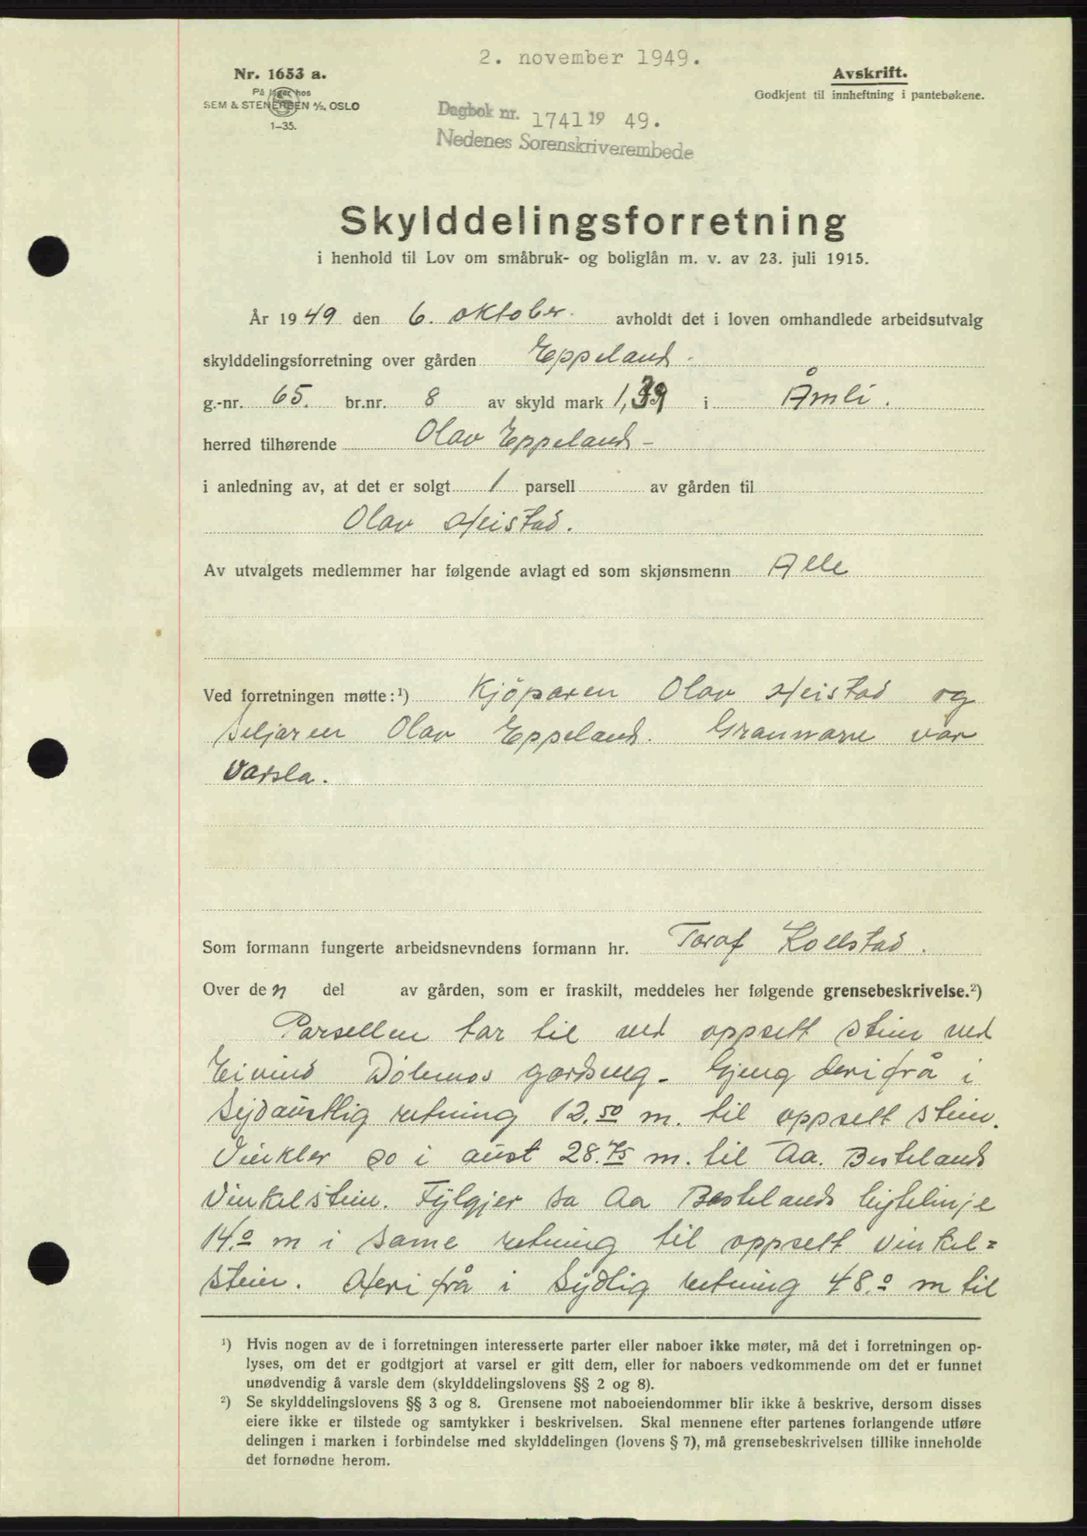 2. november 1949.
Nr. 1653 a.
På lager hos
SEM & STENERSEN A/S, OSLO
1-35.
Avskrift.
Godkjent til innheftning i pantebøkene.
Dagbok nr. 1741 19 49.
Nedenes Sorenskriverembede
Skylddelingsforretning
i henhold til Lov om småbruk- og boliglån m. v. av 23. juli 1915.
År 1949 den 6. oktober. avholdt det i loven omhandlede arbeidsutvalg
skylddelingsforretning over gården Eppeland.
g.-nr. 65. br.nr. 8 av skyld mark 1,39 i Åmli.
herred tilhørende Olav Eppeland-
i anledning av, at det er solgt 1 parsell av gården til
Olav Heistad.
Av utvalgets medlemmer har følgende avlagt ed som skjønsmenn Alle
Ved forretningen møtte:¹) Kjöparen Olav Heistad og
Seljaren Olav Eppeland. Grannane var
varsla.
Som formann fungerte arbeidsnevndens formann hr. Toraf Kollstad.
Over den del av gården, som er fraskilt, meddeles her følgende grensebeskrivelse.²)
Parsellen tar til ved oppsett stein ved
Eivind Dølemos gardsveg. Gjeng derifrå i
sydaustlig retning 12.50 m. til oppsett stein.
Vinkler so i aust 28.75 m. til Aa. Bestelands
vinkelstein. Fylgjer sa Aa Bestelands bytelinje
14.0 m i same retning til oppsett vinkel=
stein. Heri frå i Sydlig retning 48.0 m til
¹) Hvis nogen av de i forretningen interesserte parter eller naboer ikke møter, må det i forretningen op-
lyses, om det er godtgjort at varsel er gitt dem, eller for naboers vedkommende om det er funnet
unødvendig å varsle dem (skylddelingslovens §§ 2 og 8).
²) Se skylddelingslovens §§ 3 og 8. Grensene mot naboeiendommer blir ikke å beskrive, dersom disses
eiere ikke er tilstede og samtykker i beskrivelsen. Skal mennene efter partenes forlangende utføre
delingen i marken i forbindelse med skylddelingen (lovens § 7), må grensebeskrivelsen tillike inneholde
det fornødne herom.